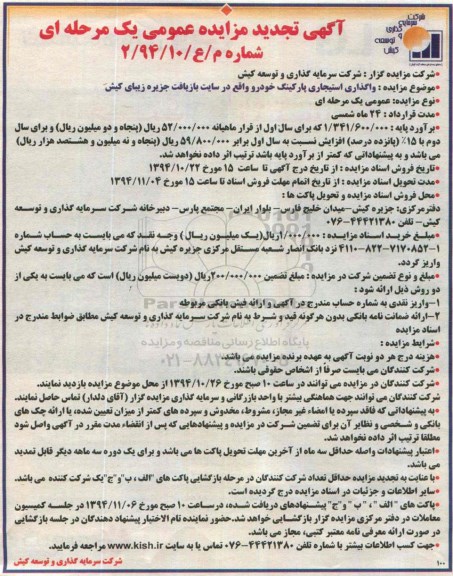 شرکت سرمایه گذاری و توسعه کیش
آگهی تجدید مزایده عمومی یک مرحله ای
شماره م/ع/۲/۹۴/۱۰
•شرکت مزایده گزار : شرکت سرمایه گذاری و توسعه کیش
•موضوع مزایده : واگذاری استیجاری پارکینگ خودرو واقع در سایت بازیافت جزیره زیبای کیش
•نوع مزایده: عمومی یک مرحله ای
•مدت قرارداد : ۲۴ ماه شمسی
•برآورد پایه : ۱/۳۴۱/۶۰۰/۰۰۰ که برای سال اول از قرار ماهیانه ۵۲/۰۰۰/۰۰۰ ریال (پنجاه و دو میلیون ریال) و برای سال
دوم با ۱۵٪ (پانزده درصد) افزایش نسبت به سال اول برابر ۵۹/۸۰۰/۰۰۰ ریال (پنجاه و نه میلیون و هشتصد هزار ریال)
می باشد و به پیشنهاداتی که کمتر از برآورد پایه باشد ترتیب اثر داده نخواهد شد.
•تاریخ فروش اسناد مزایده : از تاریخ درج آگهی تا ساعت ۱۵ مورخ ۱۳۹۴/۱۰/۲۲
•مدت تحویل اسناد مزایده : از تاریخ اتمام مهلت فروش اسناد تا ساعت ۱۵ مورخ ۱۳۹۴/۱۱/۰۴
•محل فروش اسناد مزایده و تحویل پاکت ها :
دفترمرکزی: جزیره کیش–میدان خلیج فارس– بلوار ایران– مجتمع پارس– دبیرخانه شرکت سرمایه گذاری و توسعه
کیش– تلفن ۴۴۴۲۱۳۸۰–۰۷۶
•مبلغ خرید اسناد مزایده : ۱/۰۰۰/۰۰۰ریال(یک میلیون ریال ) وجه نقد که می بایست به حساب شماره
۱–۷۱۷۰۸۵۲–۸۲۲–۴۱۱۰ نزد بانک انصار شعبه مستقل مرکزی جزیره کیش به نام شرکت سرمایه گذاری و توسعه کیش
واریز گردد.
•مبلغ و نوع تضمین شرکت در مزایده : مبلغ تضمین ۲۰۰/۰۰۰/۰۰۰ریال (دویست میلیون ریال) است که می بایست به یکی از
دو روش ذیل ارائه شود :
۱–واریز نقدی به شماره حساب مندرج در آگهی و ارائه فیش بانکی مربوطه
۲–ارائه ضمانت نامه بانکی بدون هرگونه قید و شرط به نام شرکت سرمایه گذاری و توسعه کیش مطابق ضوابط مندرج در
اسناد مزایده
•شرایط مزایده :
•هزینه درج هر دو نوبت آگهی به عهده برنده مزایده می باشد.
•شرکت کنندگان می بایست صرفاً از اشخاص حقوقی باشند.
•شرکت کنندگان در مزایده می توانند در ساعت ۱۰ صبح مورخ ۱۳۹۴/۱۰/۲۶ از محل موضوع مزایده بازدید نمایند.
شرکت کنندگان می توانند جهت هماهنگی بیشتر با واحد بازرگانی و سرمایه گذاری مزایده گزار (آقای دلدار) تماس حاصل نمایند.
•به پیشنهاداتی که فاقد سپرده یا امضاء غیر مجاز، مشروط، مخدوش و سپرده های کمتر از میزان تعیین شده، یا ارائه چک های
بانکی و شخصی و نظایر آن برای تضمین شرکت در مزایده و پیشنهادهایی که پس از انقضاء مدت مقرر در آگهی واصل شود
مطلقا ترتیب اثر داده نخواهد شد.
•اعتبار پیشنهادات واصله حداقل سه ماه از آخرین مهلت تحویل پاکت ها می باشد و برای یک دوره سه ماهه دیگر قابل تمدید
می باشد.
•با عنایت به تجدید مزایده حداقل تعداد شرکت کنندگان در مرحله بازگشایی پاکت های "الف ، ب"و"ج"یک شرکت کننده می باشد.
•سایر اطلاعات و جزئیات در اسناد مزایده درج گردیده است.
•پاکت های "الف" ، " ب " و "ج" پیشنهادهای دریافت شده، درساعت ۱۰ صبح مورخ ۱۳۹۴/۱۱/۰۶ در جلسه کمیسیون
معاملات در دفتر مرکزی مزایده گزار بازگشایی خواهد شد.حضور نماینده تام الاختیار پیشنهاد دهندگان در جلسه بازگشایی
در صورت ارائه معرفی نامه معتبر کتبی، مجاز می باشد.
•جهت کسب اطلاعات بیشتر با شماره تلفن ۴۴۴۲۱۳۸۰–۰۷۶ تماس یا به سایت www.kish.ir مراجعه فرمایید.
شرکت سرمایه گذاری و توسعه کیش
۱۰۰